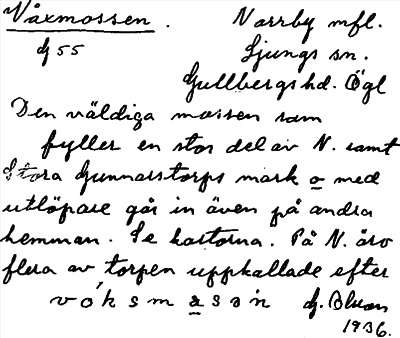 Våxmossen. Narrby mfl.
G 55 Ljungs sn.
Gullbergs hd. Ögl
Den väldiga mossen som
fyller en stor del av N. samt
Stora Gunnarstorps mark o med
utlöpare går in även på andra
hemman. Se kartorna. På N. äro
flera av torpen uppkallade efter
G. Blman
1936.